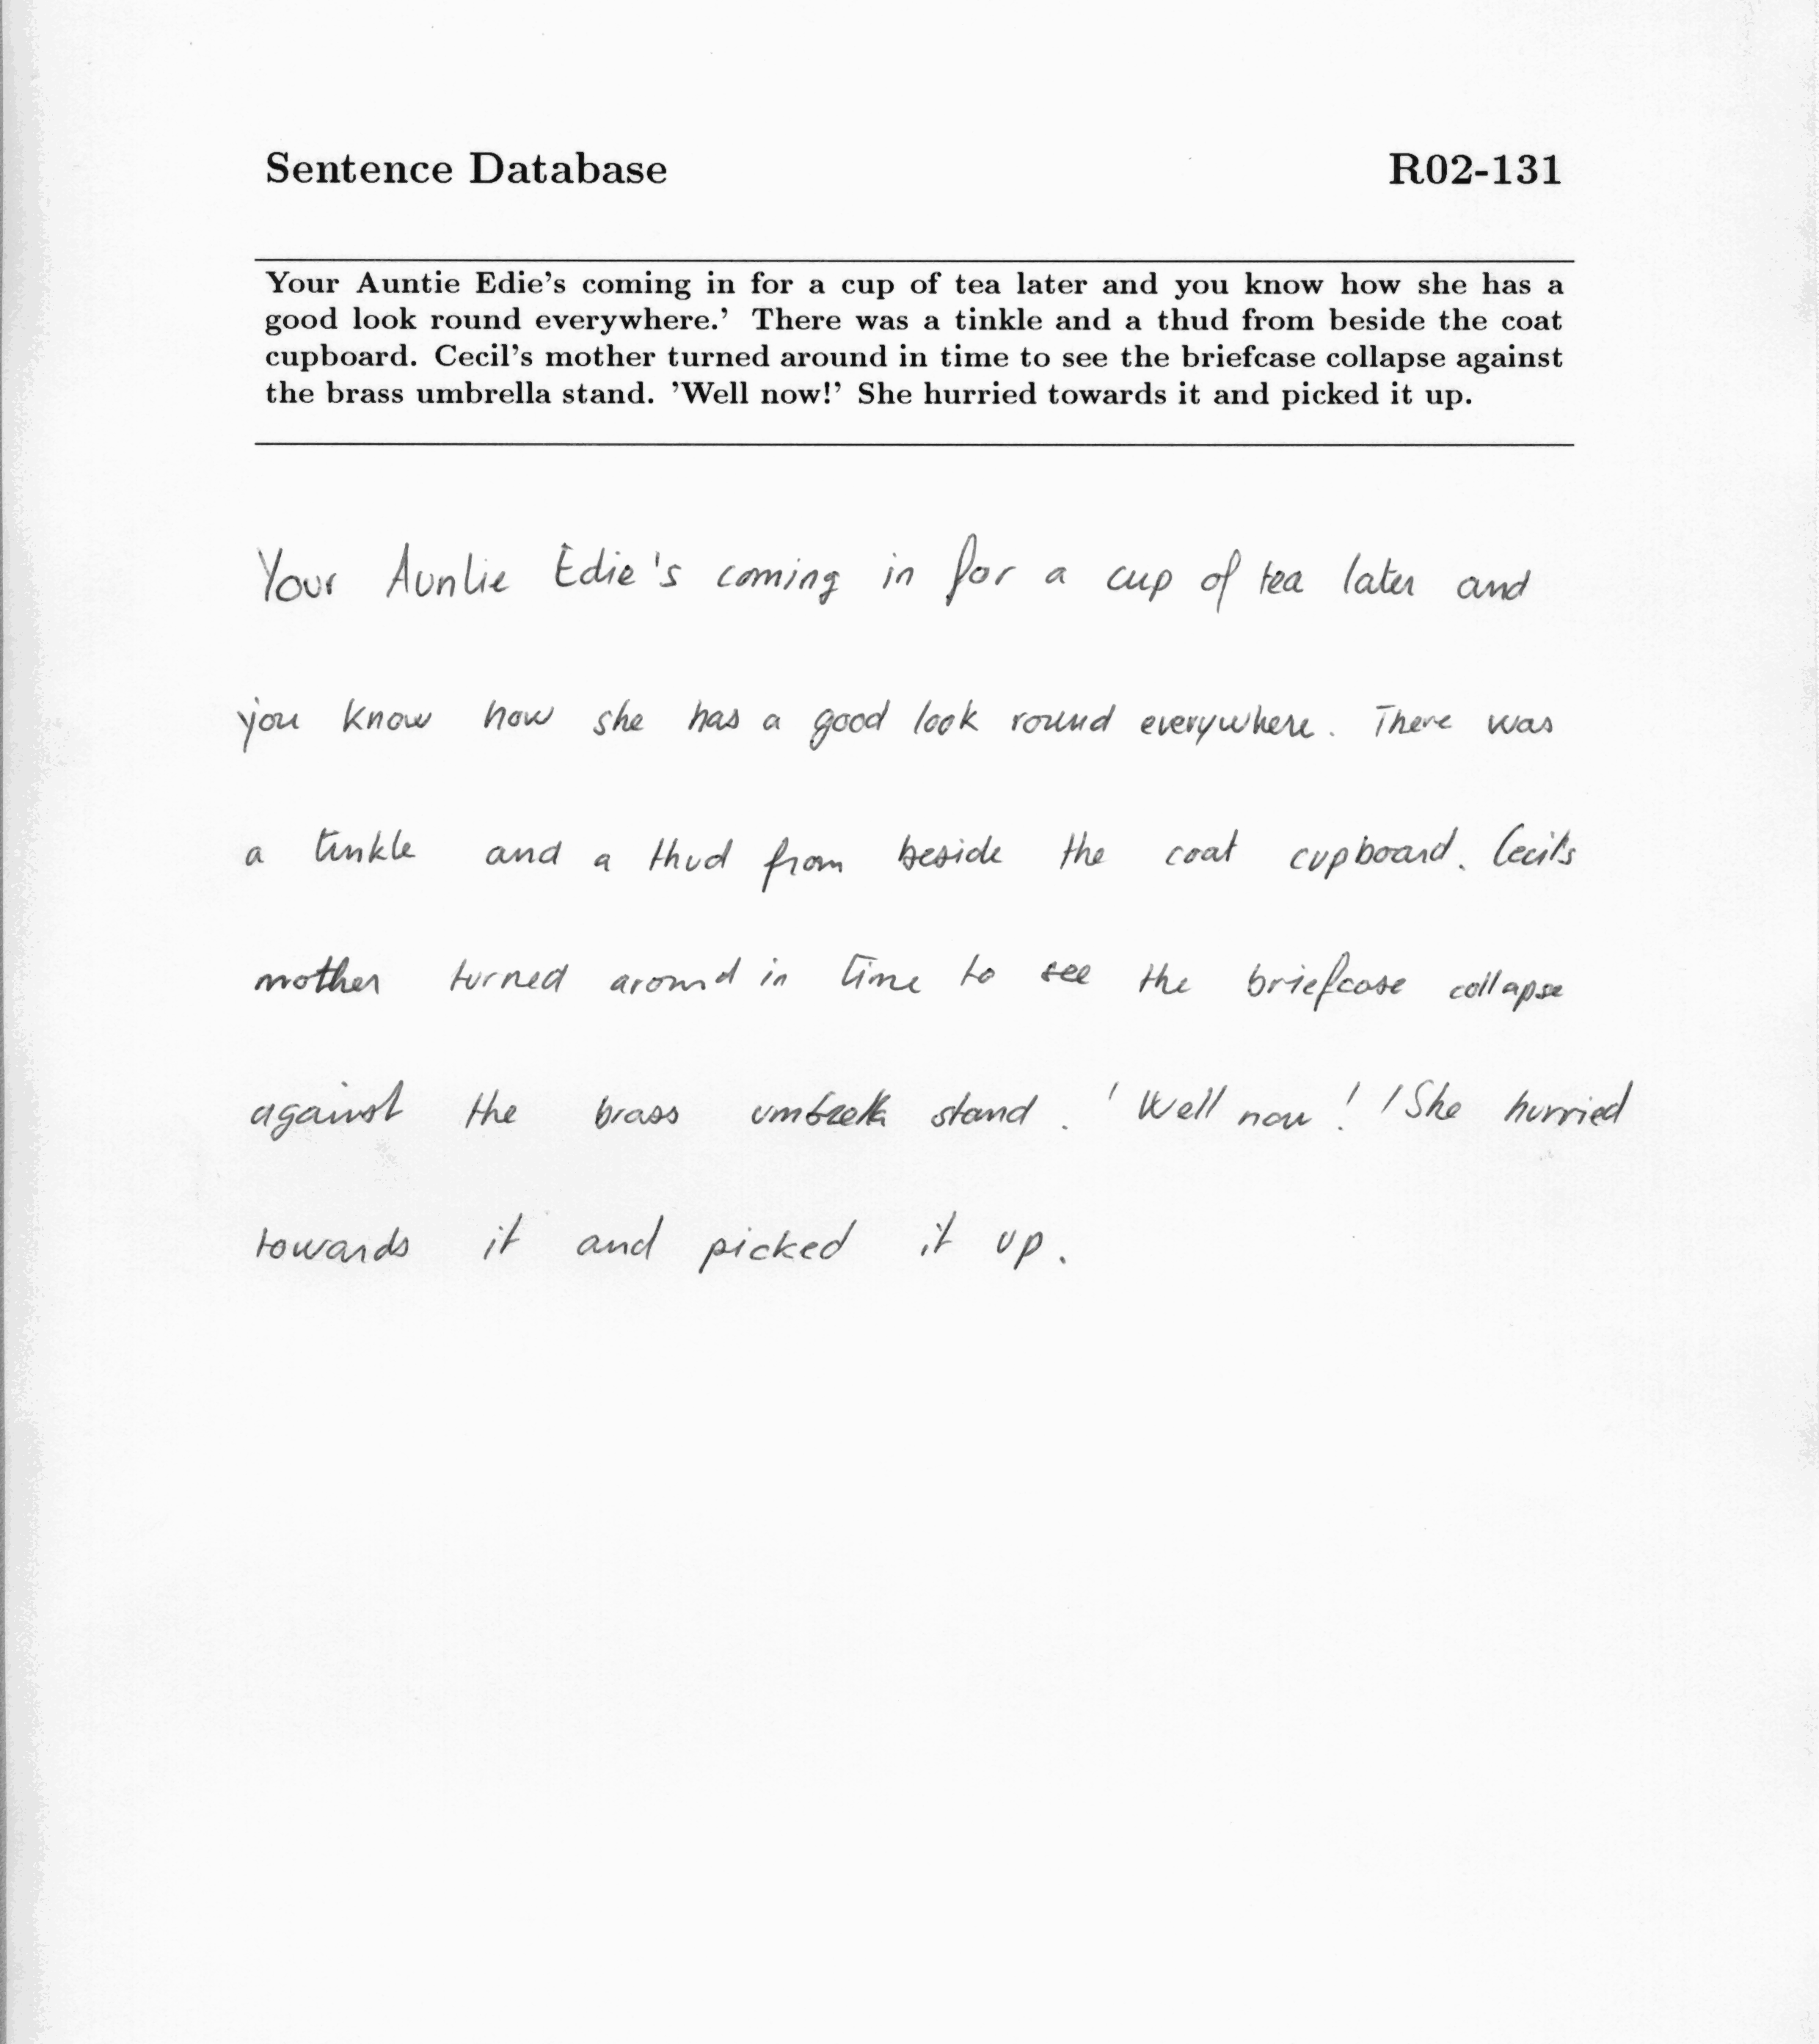 Sentence Database R02-131
Your Auntie Edie's coming in for a cup of tea later and you know how she has a
good look round everywhere.' There was a tinkle and a thud from beside the coat
cupboard. Cecil's mother turned around in time to see the briefcase collapse against
the brass umbrella stand. 'Well now!' She hurried towards it and picked it up.
Your Auntie Edie's coming in for a cup of tea later and
you know how she has a good look round everywhere. There was
a tinkle and a thud from beside the coat cupboard. Cecil's
mother turned around in time to see the briefcase collapse
against the brass umbrella stand. 'Well now!' She hurried
towards it and picked it up.